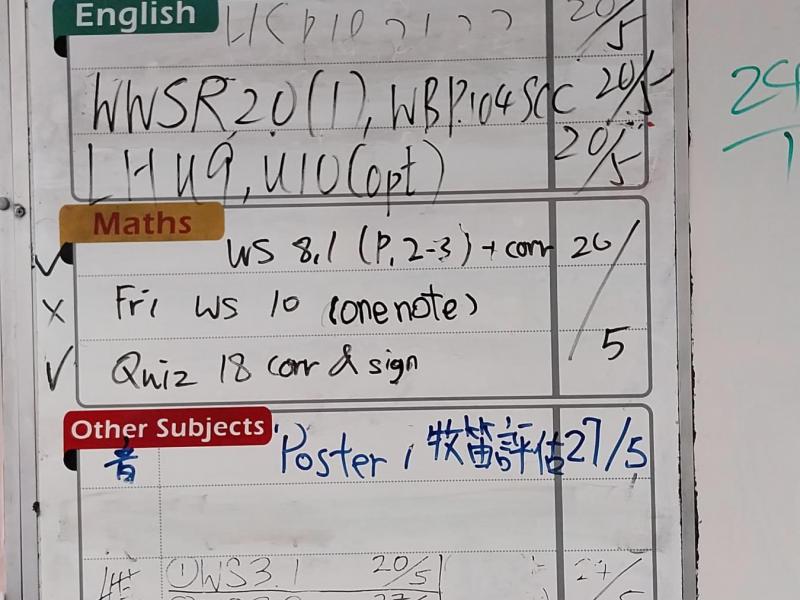 English
20/5
WWSR20(1), WBP.104SCC 20/5
LH U9, U10(opt) 20/5
Maths
✓ WS 8.1 (P.2-3) + corr 26/5
x Fri WS 10 (onenote)
✓ Quiz 18 corr & sign
Other Subjects
音 Poster, 牧笛評估 27/5
①WS3.1 20/5